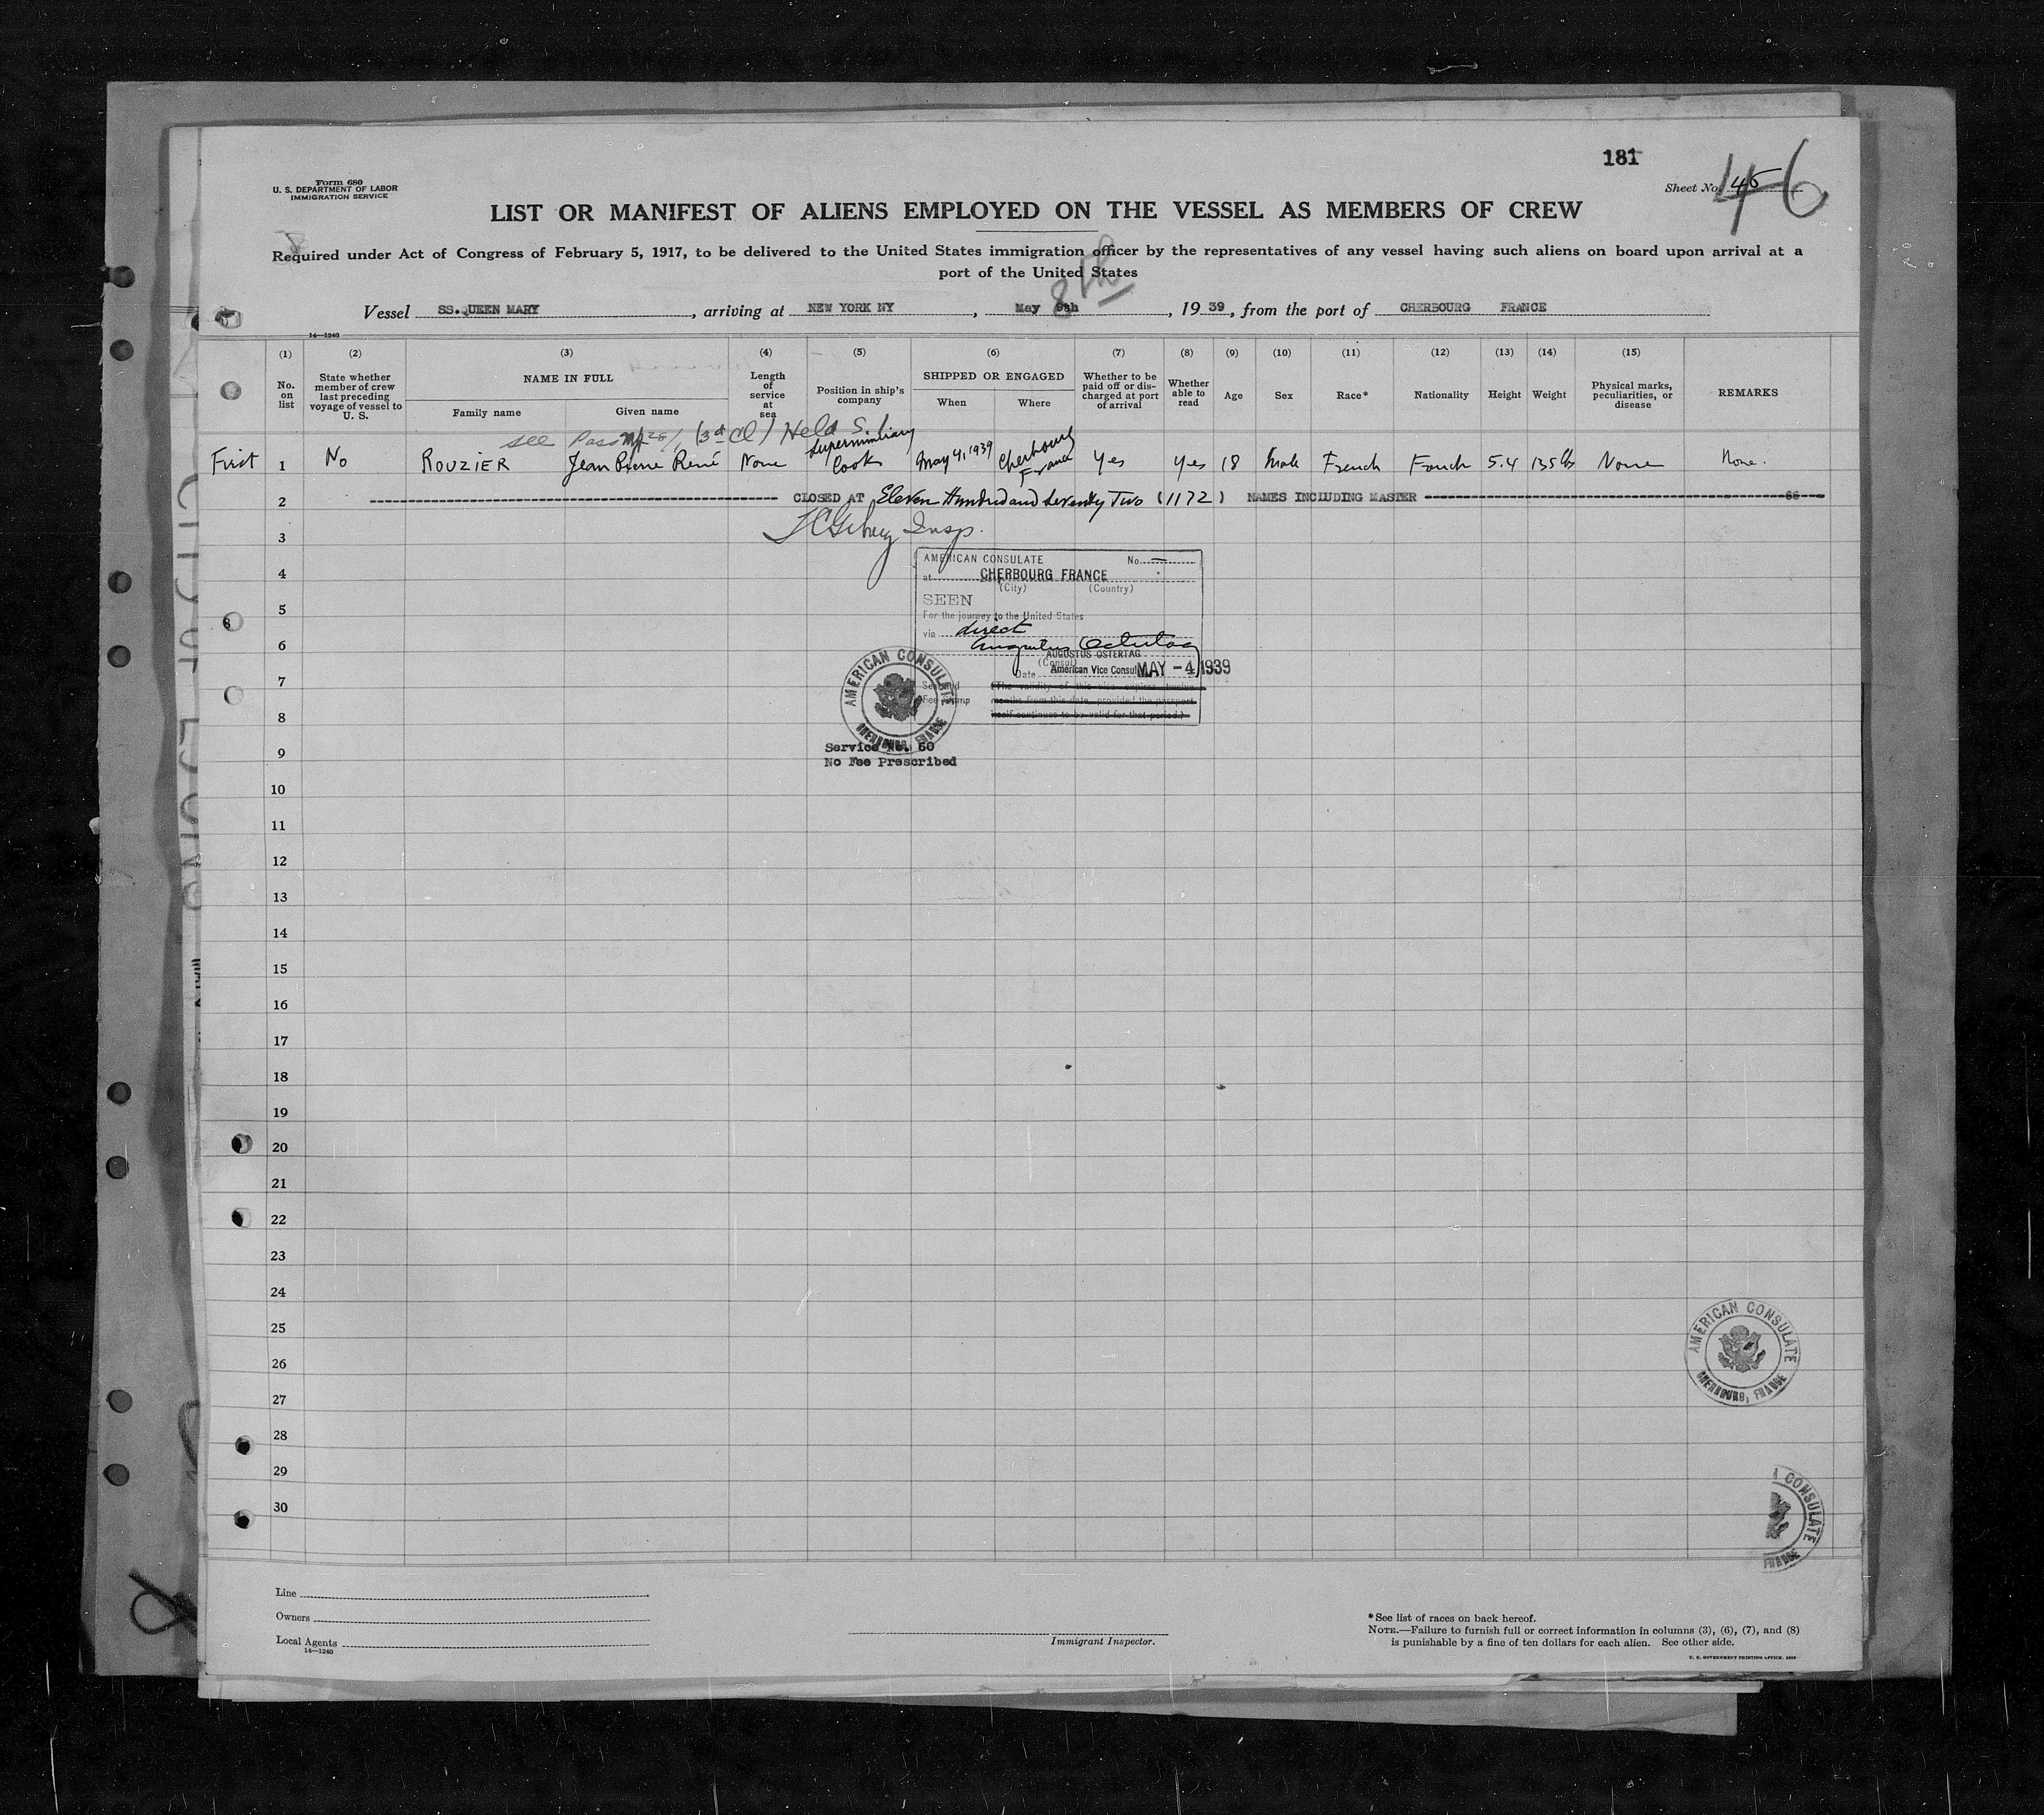 181
Form 680
U. S. DEPARTMENT OF LABOR
IMMIGRATION SERVICE
Sheet No. 45
46
LIST OR MANIFEST OF ALIENS EMPLOYED ON THE VESSEL AS MEMBERS OF CREW
Required under Act of Congress of February 5, 1917, to be delivered to the United States immigration officer by the representatives of any vessel having such aliens on board upon arrival at a
port of the United States
8th
Vessel SS.QUEEN MARY, arriving at NEW YORK NY, May 9th, 1939, from the port of CHERBOURG FRANCE
14—1240
(1) (2) (3) (4) (5) (6) (7) (8) (9) (10) (11) (12) (13) (14) (15)
No. on list
State whether member of crew last preceding voyage of vessel to U. S.
NAME IN FULL
Family name
Given name
Length of service at sea
Position in ship's company
SHIPPED OR ENGAGED
When
Where
Whether to be paid off or discharged at port of arrival
Whether able to read
Age
Sex
Race*
Nationality
Height
Weight
Physical marks, peculiarities, or disease
REMARKS
see Pass (3rd Cl) Held S.I.
First 1 No ROUZIER Jean Pierre René None Cook May 4, 1939 Cherbourg France Yes Yes 18 Male French French 5.4 135 lbs None None.
2 CLOSED AT Eleven Hundred and Seventy Two (1172) NAMES INCLUDING MASTER
3
Insp.
AMERICAN CONSULATE No. —
4
at CHERBOURG FRANCE
(City) (Country)
SEEN
5
For the journey to the United States
via direct
6
Augustus Ostertag
AUGUSTUS OSTERTAG
(Consul)
American Vice Consul
Date MAY -4 1939
7
(The validity of this visa expires twelve
months from this date, provided the passport
itself continues to be valid for that period.)
AMERICAN CONSULATE
CHERBOURG, FRANCE
8
Service No. 60
9
No Fee Prescribed
10
11
12
13
14
15
16
17
18
19
20
21
22
23
24
25
AMERICAN CONSULATE
CHERBOURG, FRANCE
26
27
28
29
CONSULATE
FRANCE
30
Line
Owners
Local Agents
14—1240
Immigrant Inspector.
*See list of races on back hereof.
NOTE.—Failure to furnish full or correct information in columns (3), (6), (7), and (8)
is punishable by a fine of ten dollars for each alien. See other side.
U. S. GOVERNMENT PRINTING OFFICE